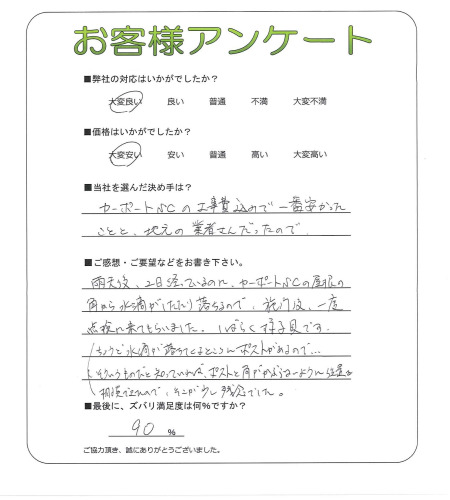 お客様アンケート
■弊社の対応はいかがでしたか？
大変良い 良い 普通 不満 大変不満
■価格はいかがでしたか？
大変安い 安い 普通 高い 大変高い
■当社を選んだ決め手は？
カーポートSCの工事費込みで一番安かった
ことと、地元の業者さんだったので
■ご感想・ご要望などをお書き下さい。
雨天後、2日経っているのに、カーポートSCの屋根の
角から水滴がしたたり落ちるので、施行後、一度
点検に来てもらいました。しばらく様子見です。
(ちょうど水滴が落ちてくるところにポストがあるので…
そういうものだと知っていれば、ポストと角がかぶらないように位置を
相談できたので、そこが少し残念でした。
■最後に、ズバリ満足度は何%ですか？
90 %
ご協力頂き、誠にありがとうございました。